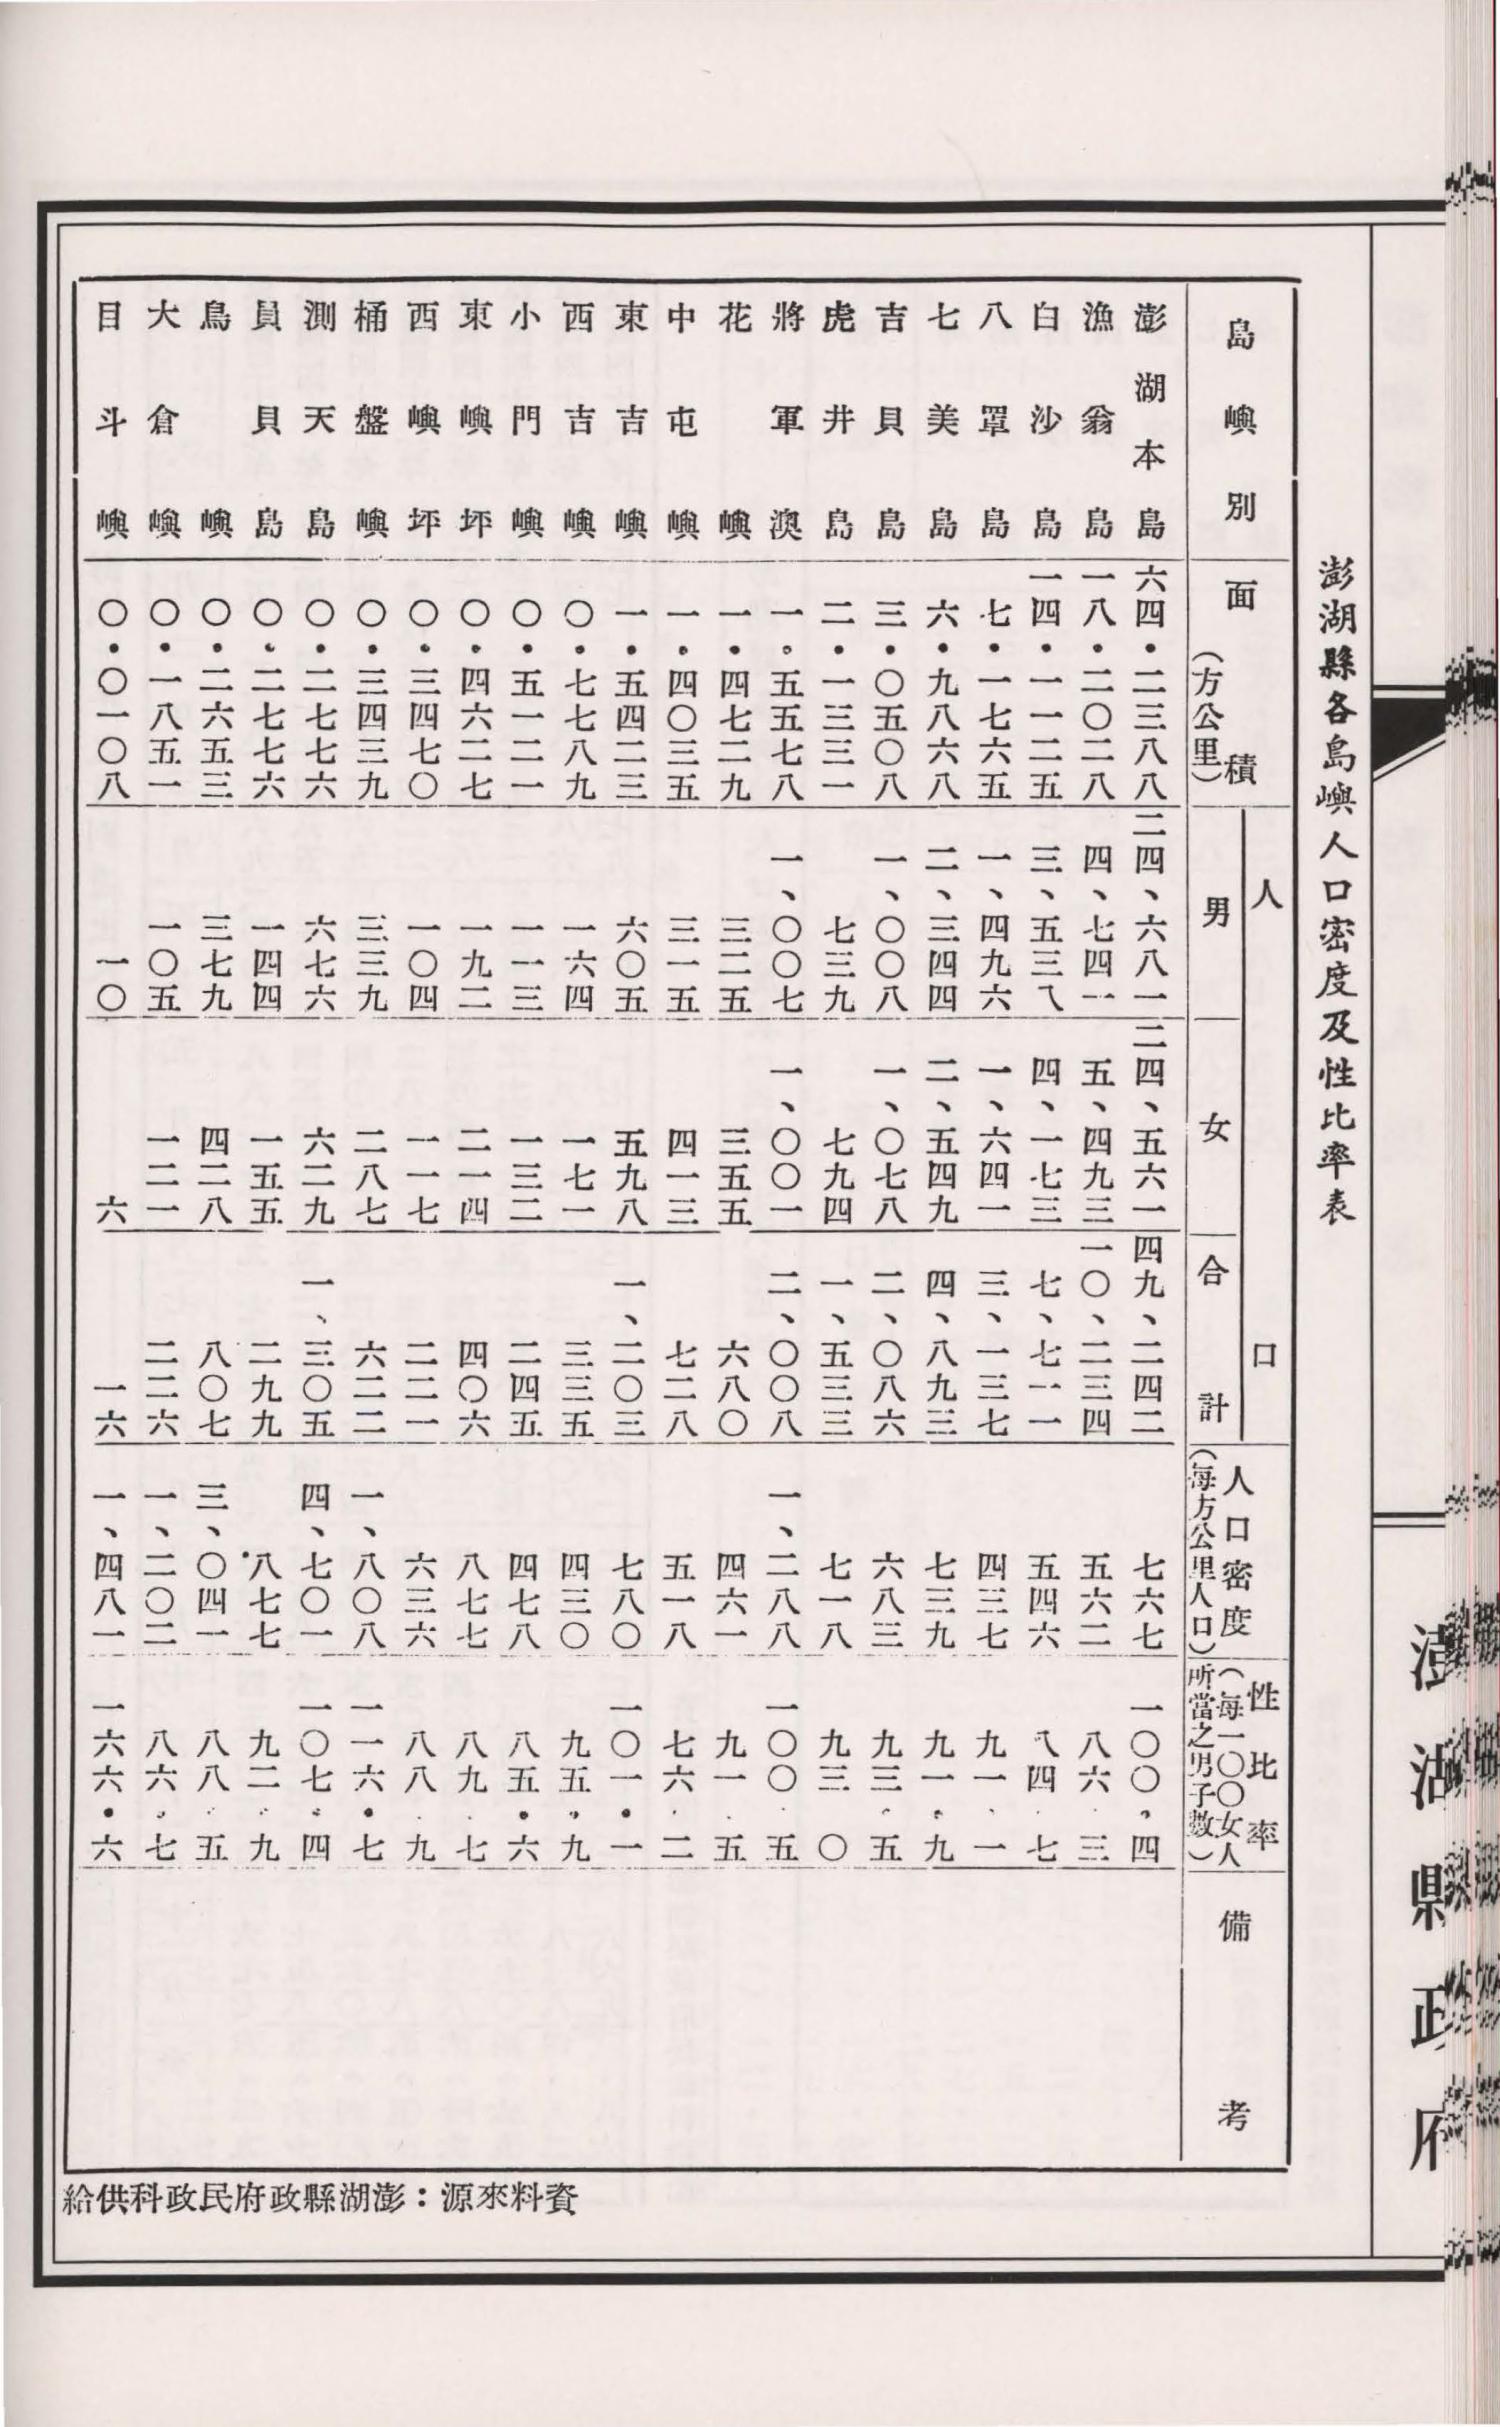 澎湖縣政府
澎湖縣各島嶼人口密度及性比率表
島嶼別 面積(方公里) 人口 男 女 合計 人口密度(每方公里人口) 性比率(每一〇〇女人所當之男子數) 備考
澎湖本島 六四・二三八八 二四、六八一 二四、五六一 四九、二四二 七六七 一〇〇・四
漁翁島 一八・二〇二八 四、七四一 五、四九三 一〇、二三四 五六二 八六・三
白沙島 一四・一一二五 三、五三八 四、一七三 七、七一一 五四六 八四・七
八罩島 七・一七六五 一、四九六 一、六四一 三、一三七 四三七 九一・一
七美島 六・九八六八 二、三四四 二、五四九 四、八九三 七三九 九一・九
吉貝島 三・〇五〇八 一、〇〇八 一、〇七八 二、〇八六 六八三 九三・五
虎井島 二・一三三一 七三九 七九四 一、五三三 七一八 九三・〇
將軍澳 一・五五七八 一、〇〇七 一、〇〇一 二、〇〇八 一、二八八 一〇〇・五
花嶼 一・四七二九 三二五 三五五 六八〇 四六一 九一・五
中屯嶼 一・四〇三五 三一五 四一三 七二八 五一八 七六・二
東吉嶼 一・五四二三 六〇五 五九八 一、二〇三 七八〇 一〇一・一
西吉嶼 〇・七七八九 一六四 一七一 三三五 四三〇 九五・九
小門嶼 〇・五一二一 一一三 一三二 二四五 四七八 八五・六
東嶼坪 〇・四六二七 一九二 二一四 四〇六 八七七 八九・七
西嶼坪 〇・三四七〇 一〇四 一一七 二二一 六三六 八八・九
桶盤嶼 〇・三四三九 三三九 二八七 六二二 一、八〇八 一一六・七
測天島 〇・二七七六 六七六 六二九 一、三〇五 四、七〇一 一〇七・四
員貝島 〇・二七七六 一四四 一五五 二九九 八七七 九二・九
鳥嶼 〇・二六五三 三七九 四二八 八〇七 三、〇四一 八八・五
大倉嶼 〇・一八五一 一〇五 一二一 二二六 一、二〇二 八六・七
目斗嶼 〇・〇一〇八 一〇 六 一六 一、四八一 一六六・六
資料來源：澎湖縣政府民政科供給